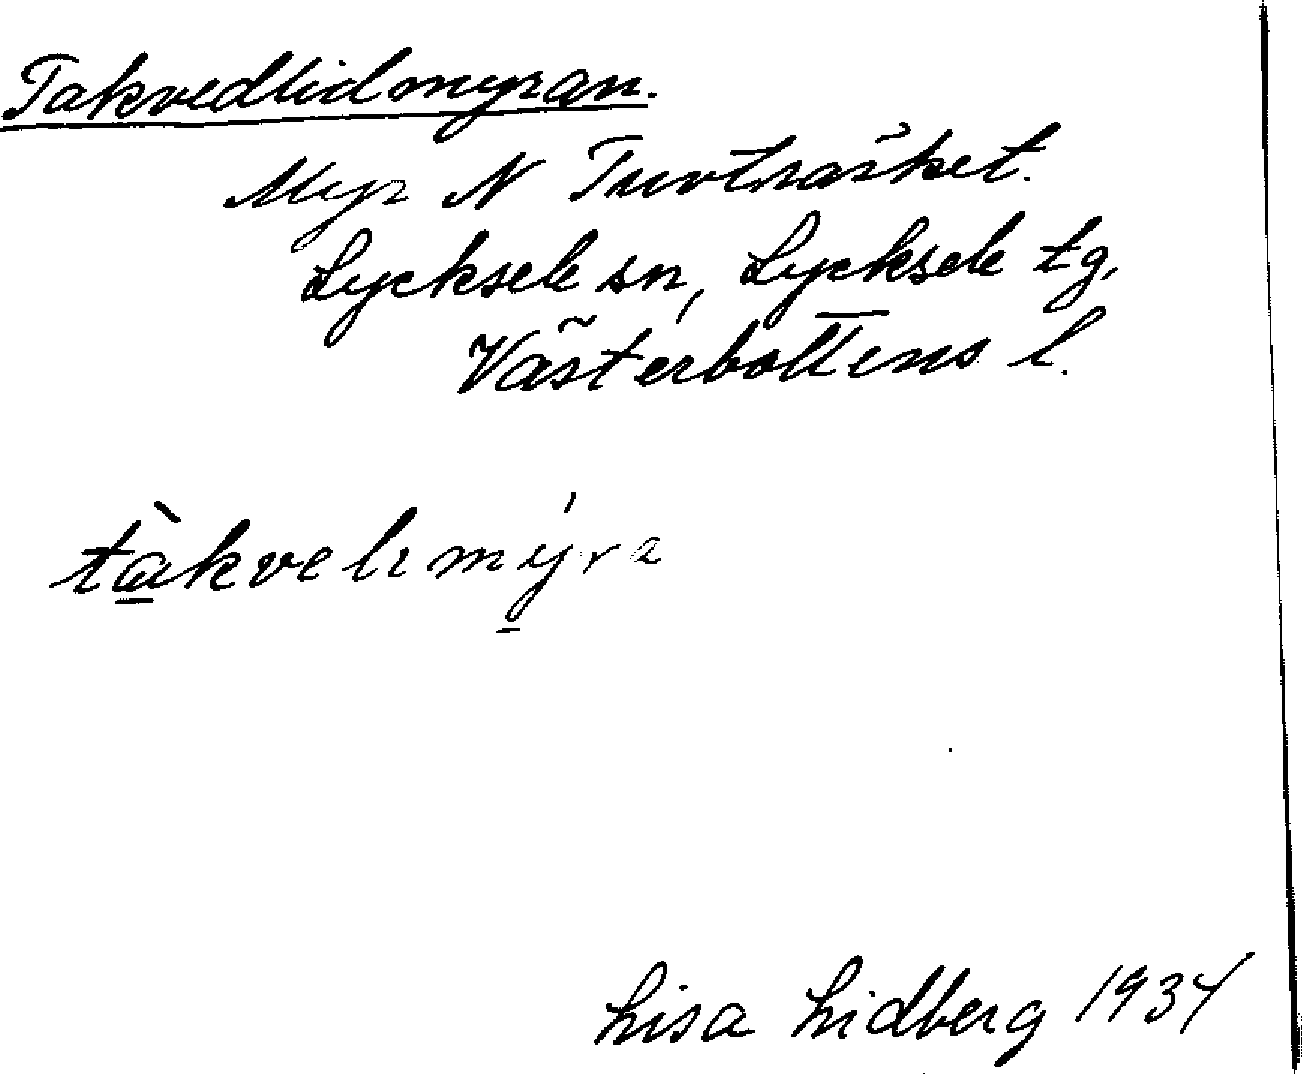 Takvedlidmyran.
Myr N Tuvträsket.
Lycksele sn, Lycksele tg,
Västerbottens l.
tàkvelimýra
Lisa Lidberg 1934